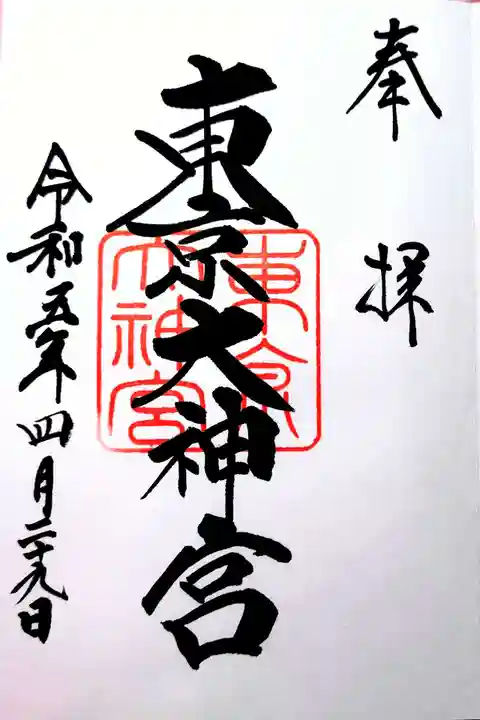 奉拝
東京大神宮
東京
大神宮
令和五年四月二十九日